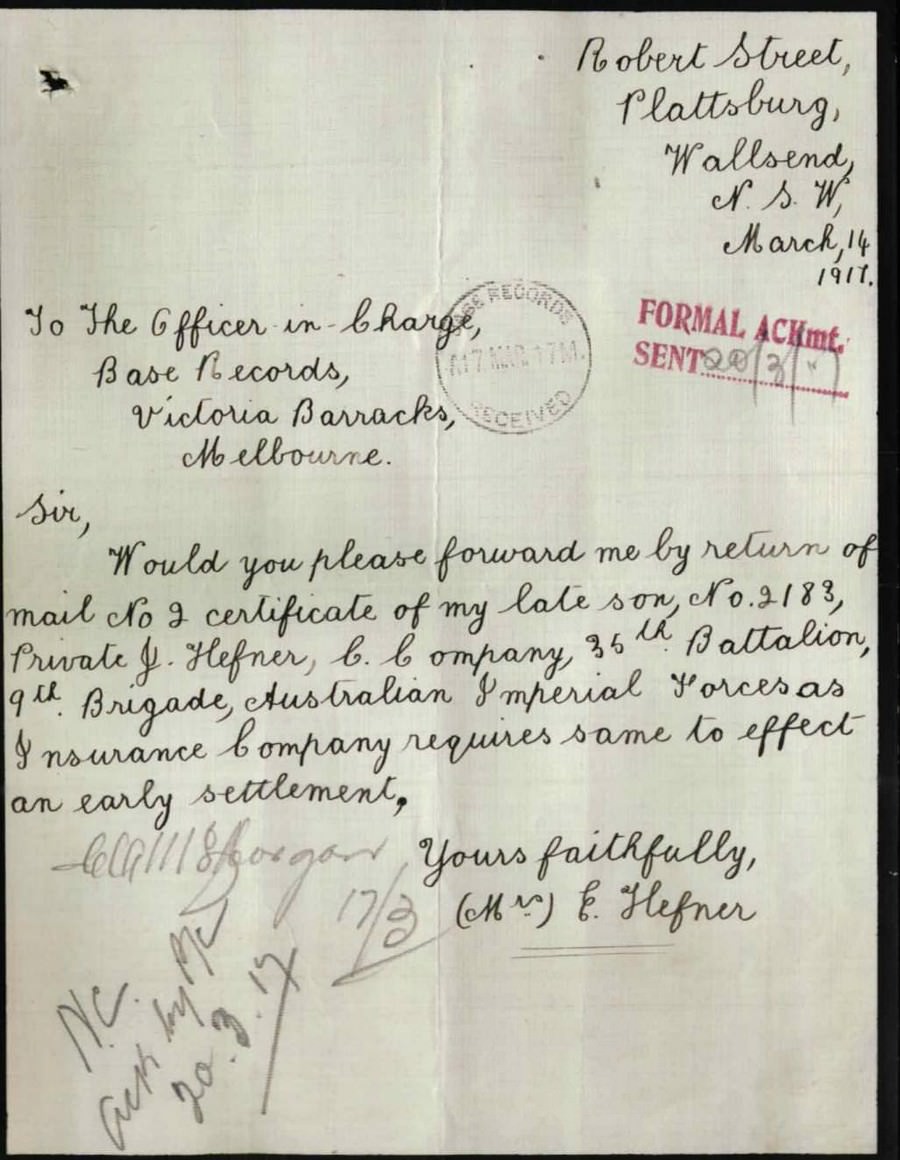 Robert Street,
Plattsburg,
Wallsend,
N. S. W,
March, 14
1917.
To The Officer-in-Charge,
Base Records,
Victoria Barracks,
Melbourne.
BASE RECORDS
17 MAR 17
RECEIVED
FORMAL ACKmt.
SENT 20/3/17
Sir,
Would you please forward me by return of
mail No 2 certificate of my late son, No. 2183,
Private J. Hefner, C. Company, 35th. Battalion,
9th. Brigade, Australian Imperial Forces as
Insurance Company requires same to effect
an early settlement,
Yours faithfully,
(Mrs) E. Hefner
17/3
N.C.
ack by
20.3.17